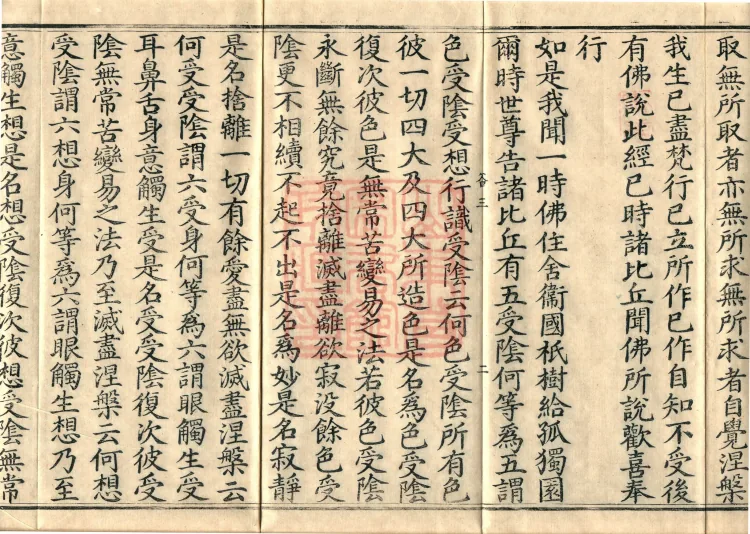 取無所取者亦無所求無所求者自覺涅槃
我生已盡梵行已立所作已作自知不受後
有佛說此經已時諸比丘聞佛所說歡喜奉
行
如是我聞一時佛住舍衞國祇樹給孤獨園
爾時世尊告諸比丘有五受陰何等爲五謂
色受陰受想行識受陰云何色受陰所有色
彼一切四大及四大所造色是名爲色受陰
復次彼色是無常苦變易之法若彼色受陰
永斷無餘究竟捨離滅盡離欲寂没餘色受
陰更不相續不起不出是名爲妙是名寂靜
是名捨離一切有餘愛盡無欲滅盡涅槃云
何受受陰謂六受身何等爲六謂眼觸生受
耳鼻舌身意觸生受是名受受陰復次彼受
陰無常苦變易之法乃至滅盡涅槃云何想
受陰謂六想身何等爲六謂眼觸生想乃至
意觸生想是名想受陰復次彼想受陰無常